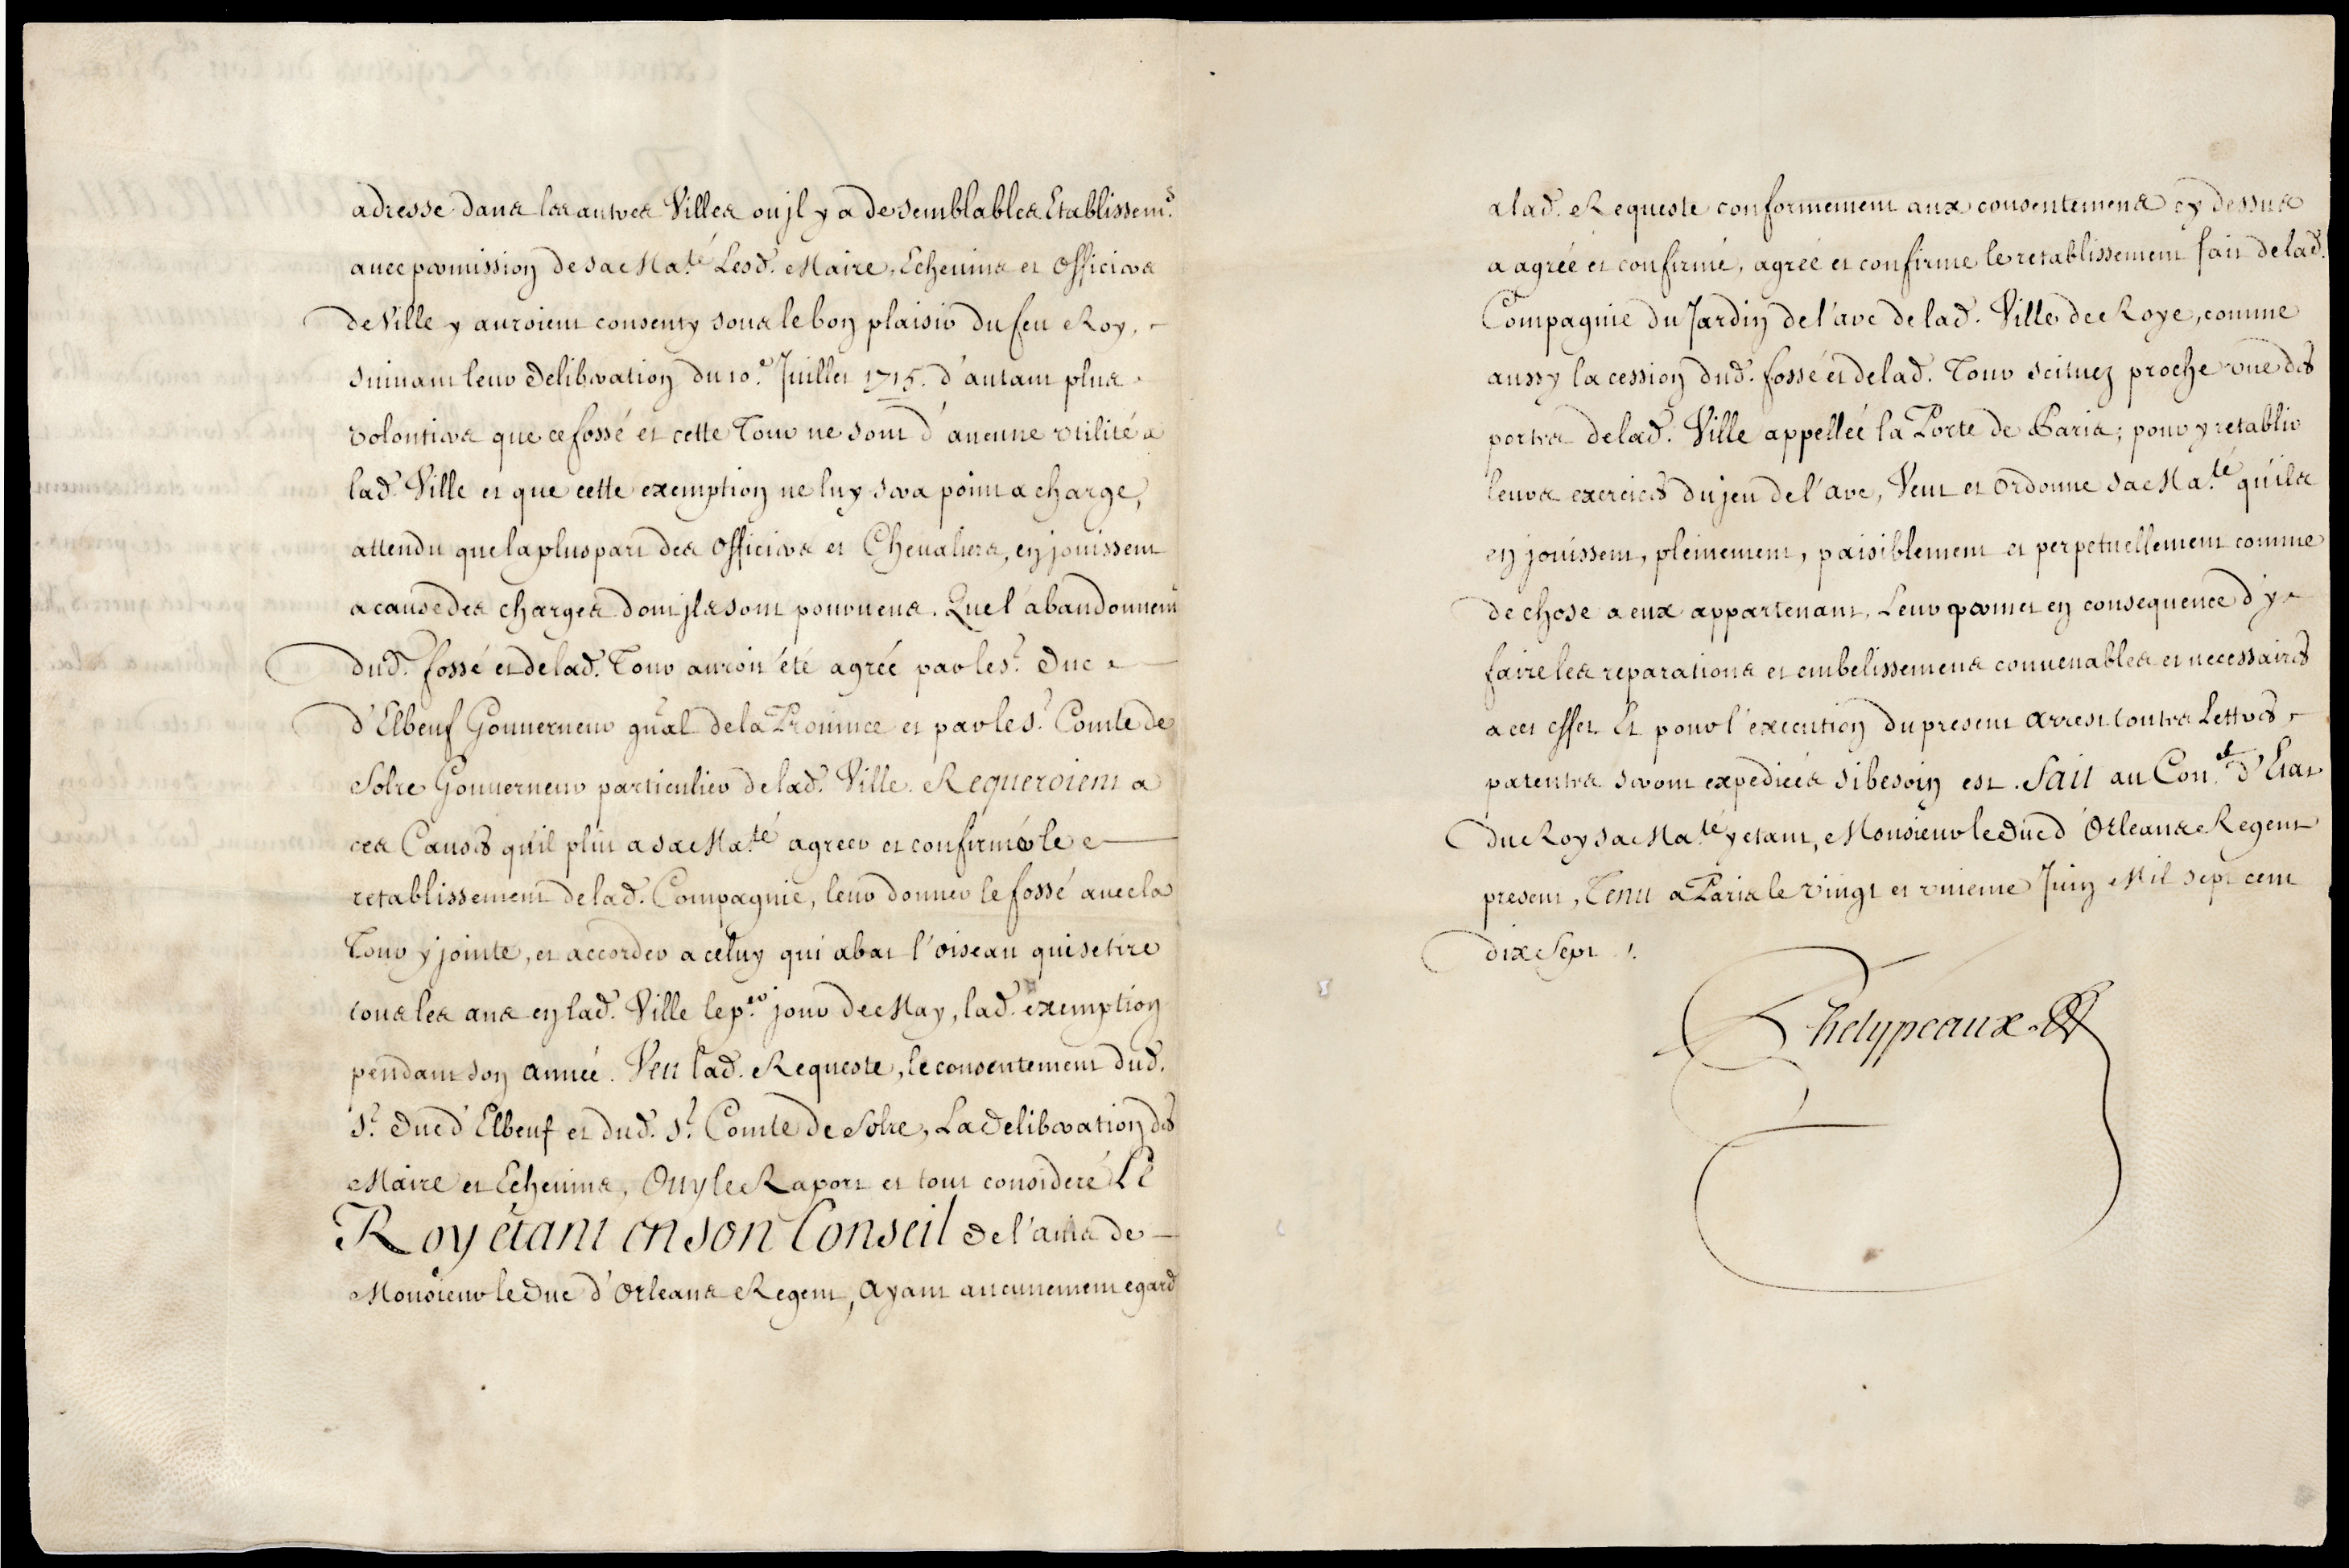 adresse dans les autres Villes ou jl y a de semblables Etablissem.s
avec permission de sa Ma.té Lesd. Maire, Echevins et Officiers
de Ville y auroient consenty sous le bon plaisir du feu Roy,
suivant leur Deliberation du 10.e Juillet 1715. d'autant plus
volontiers que ce fossé et cette Tour ne sont d'aucune utilité a
lad. Ville et que cette exemption ne luy sera point a charge,
attendu que la pluspart des Officiers et Chevaliers, en jouissent
a cause des charges dont jls sont pourveus. Que l'abandonnem.t
dud. fossé et de lad. Tour auroit été agréé par le S.r Duc
d'Elbeuf Gouverneur gñal de la Province et par le S.r Comte de
Solre Gouverneur particulier de lad. Ville. Requeroient a
ces Causes qu'il plut a sa Ma.té agreer et confirmer le
retablissement de lad. Compagnie, leur donner le fossé avec la
Tour y jointe, et accorder a celuy qui abat l'oiseau qui se tire
tous les ans en lad. Ville le p.er jour de May, lad. exemption
pendant son année. Veu lad. Requeste, le consentement dud.
S.r Duc d'Elbeuf et dud. S.r Comte de Solre, La Deliberation des
Maire et Echevins, Ouy le Raport et tout consideré Le
Roy étant en son Conseil de l'avis de
Monsieur le Duc d'Orleans Regent, Ayant aucunement egard
a lad. Requeste conformement aux consentemens cy dessus
a agréé et confirmé, agrée et confirme le retablissement fait de lad.
Compagnie du Jardin de l'arc de lad. Ville de Roye, comme
aussy la cession dud. fossé et de lad. Tour scituez proche une des
portes de lad. Ville appellée la Porte de Paris; pour y retablir
leurs exercices du jeu de l'arc, Veut et Ordonne sa Ma.té qu'ils
en jouissent, pleinement, paisiblement et perpetuellement comme
de chose a eux appartenant, Leur permet en consequence d'y
faire les reparations et embelissemens convenables et necessaires
a cet effet. Et pour l'execution du present Arrest toutes Lettres
patentes seront expediées si besoin est. Fait au Con.el d'Etat
du Roy sa Ma.té y etant, Monsieur le Duc d'Orleans Regent
present, Tenu a Paris le vingt et unieme Juin Mil sept cent
dix Sept ./.
Phelypeaux